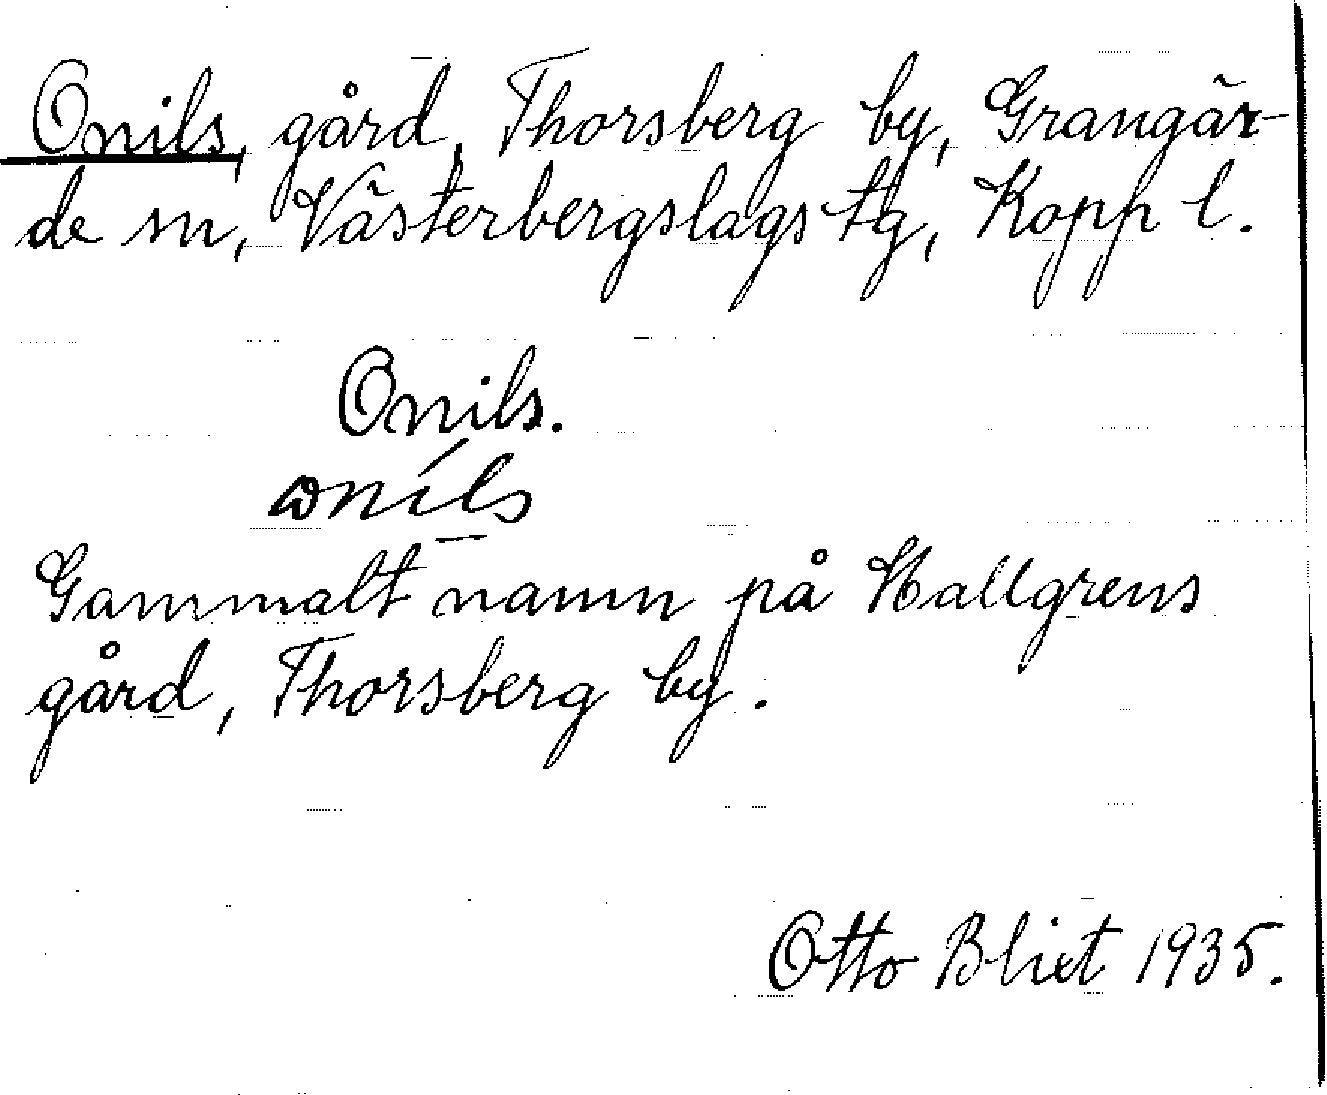 Onils, gård, Thorsberg by, Grangär-
de sn, Västerbergslags tg, Kopp l.
Onils.
Gammalt namn på Hallgrens
gård, Thorsberg by.
Otto Blixt 1935.